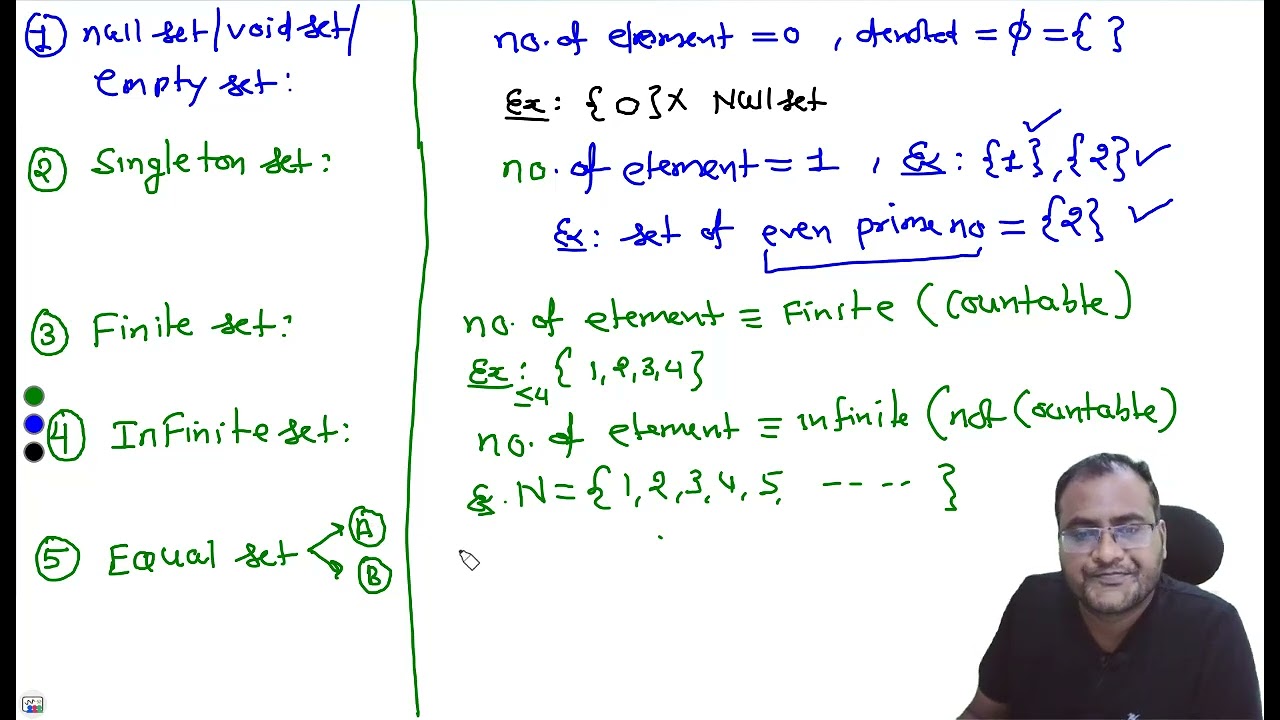 ① null set/void set/
empty set:
no. of element = 0 , denoted = ϕ = { }
Ex: { 0 } X Null set
② Singleton set:
no. of element = 1 , Ex: {1}, {2} ✓
✓
Ex: set of even prime no = {2} ✓
③ Finite set:
no. of element ≡ Finite (Countable)
Ex: { 1, 2, 3, 4 }
≤4
④ InFinite set:
no. of element ≡ infinite (not Countable)
Ex. N = { 1, 2, 3, 4, 5, ---- }
⑤ Equal set
A
B